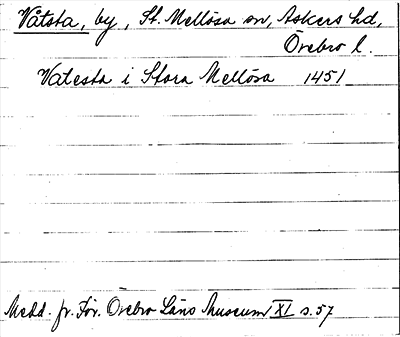 Vatsta, by, St. Mellösa sn, Askers hd,
Örebro l.
Vatesta i Stora Mellösa 1451
Medd. fr. För. Örebro Läns Museum XI s. 57